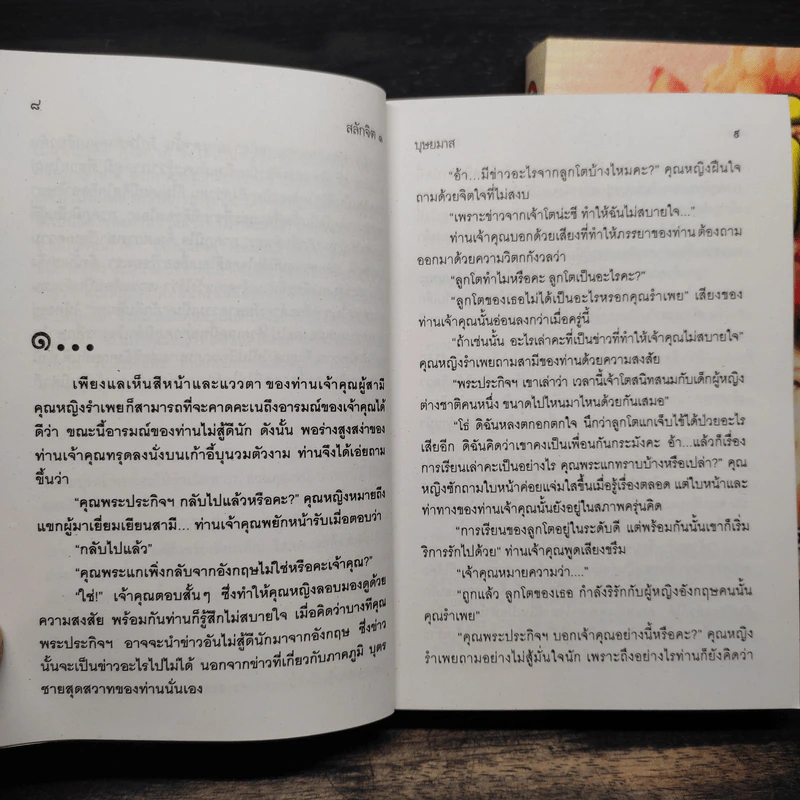 ๘
สลักจิต ๑
๑...
เพียงแลเห็นสีหน้าและแววตา ของท่านเจ้าคุณผู้สามี
คุณหญิงรำเพยก็สามารถที่จะคาดคะเนถึงอารมณ์ของเจ้าคุณได้
ดีว่า ขณะนี้อารมณ์ของท่านไม่สู้ดีนัก ดังนั้น พอร่างสูงสง่าของ
ท่านเจ้าคุณทรุดลงนั่งบนเก้าอี้บุนวมตัวงาม ท่านจึงได้เอ่ยถาม
ขึ้นว่า
“คุณพระประกิจฯ กลับไปแล้วหรือคะ?” คุณหญิงหมายถึง
แขกผู้มาเยี่ยมเยียนสามี... ท่านเจ้าคุณพยักหน้ารับเมื่อตอบว่า
“กลับไปแล้ว”
“คุณพระแกเพิ่งกลับจากอังกฤษไม่ใช่หรือคะเจ้าคุณ?”
“ใช่!” เจ้าคุณตอบสั้นๆ ซึ่งทำให้คุณหญิงลอบมองดูด้วย
ความสงสัย พร้อมกับท่านก็รู้สึกไม่สบายใจ เมื่อคิดว่าบางทีคุณ
พระประกิจฯ อาจจะนำข่าวอันไม่สู้ดีนักมาจากอังกฤษ ซึ่งข่าว
นั้นจะเป็นข่าวอะไรไปไม่ได้ นอกจากข่าวที่เกี่ยวกับภาคภูมิ บุตร
ชายสุดสวาทของท่านนั่นเอง
บุษยมาส
๙
“อ้า...มีข่าวอะไรจากลูกโตบ้างไหมคะ?” คุณหญิงฝืนใจ
ถามด้วยจิตใจที่ไม่สงบ
“เพราะข่าวจากเจ้าโตน่ะซี ทำให้ฉันไม่สบายใจ...”
ท่านเจ้าคุณบอกด้วยเสียงที่ทำให้ภรรยาของท่าน ต้องถาม
ออกมาด้วยความวิตกกังวลว่า
“ลูกโตทำไมหรือคะ ลูกโตเป็นอะไรคะ?”
“ลูกโตของเธอไม่ได้เป็นอะไรหรอกคุณรำเพย” เสียงของ
ท่านเจ้าคุณนั้นอ่อนลงกว่าเมื่อครู่นี้
“ถ้าเช่นนั้น อะไรเล่าคะที่เป็นข่าวที่ทำให้เจ้าคุณไม่สบายใจ”
คุณหญิงรำเพยถามสามีของท่านด้วยความสงสัย
“พระประกิจฯ เขาเล่าว่า เวลานี้เจ้าโตสนิทสนมกับเด็กผู้หญิง
ต่างชาติคนหนึ่ง ขนาดไปไหนมาไหนด้วยกันเสมอ”
“โธ่ ดิฉันหลงตกอกตกใจ นึกว่าลูกโตแกเจ็บไข้ได้ป่วยอะไร
เสียอีก ดิฉันคิดว่าเขาคงเป็นเพื่อนกันกระมังคะ อ้า...แล้วก็เรื่อง
การเรียนเล่าคะเป็นอย่างไร คุณพระแกทราบบ้างหรือเปล่า?” คุณ
หญิงซักถามใบหน้าค่อยแจ่มใสขึ้นเมื่อรู้เรื่องตลอด แต่ใบหน้าและ
ท่าทางของท่านเจ้าคุณนั้นยังอยู่ในสภาพครุ่นคิด
“การเรียนของลูกโตอยู่ในระดับดี แต่พร้อมกันนั้นเขาก็เริ่ม
ริการรักไปด้วย” ท่านเจ้าคุณพูดเสียงขรึม
“เจ้าคุณหมายความว่า....”
“ถูกแล้ว ลูกโตของเธอ กำลังริรักกับผู้หญิงอังกฤษคนนั้น
คุณรำเพย”
“คุณพระประกิจฯ บอกเจ้าคุณอย่างนี้หรือคะ?” คุณหญิง
รำเพยถามอย่างไม่สู้มั่นใจนัก เพราะถึงอย่างไรท่านก็ยังคิดว่า